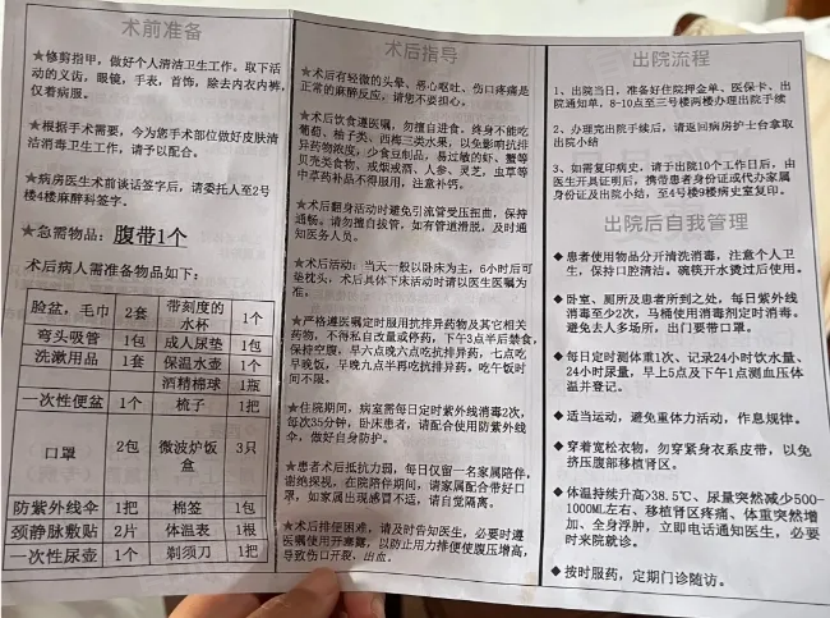 术前准备
★修剪指甲，做好个人清洁卫生工作。取下活
动的义齿，眼镜，手表，首饰，除去内衣内裤，
仅着病服。
★根据手术需要，今为您手术部位做好皮肤清
洁消毒卫生工作，请予以配合。
★病房医生术前谈话签字后，请委托人至2号
楼4楼麻醉科签字。
★急需物品：腹带1个
术后病人需准备物品如下：
脸盆，毛巾 2套 带刻度的水杯 1个
弯头吸管 1包 成人尿垫 1包
洗漱用品 1套 保温水壶 1个
酒精棉球 1瓶
一次性便盆 1个 梳子 1把
口罩 2包 微波炉饭盒 3只
防紫外线伞 1把 棉签 1包
颈静脉敷贴 2片 体温表 1根
一次性尿壶 1个 剃须刀 1把
术后指导
★术后有轻微的头晕、恶心呕吐、伤口疼痛是
正常的麻醉反应，请您不要担心。
★术后饮食遵医嘱，勿擅自进食。终身不能吃
葡萄、柚子类、西梅三类水果，以免影响抗排
异药物浓度，少食豆制品，易过敏的虾、蟹等
贝壳类食物，戒烟戒酒、人参、灵芝，虫草等
中草药补品不得服用，注意补钙。
★术后翻身活动时避免引流管受压扭曲，保持
通畅。请勿擅自拔管，如有管道滑脱，及时通
知医务人员。
★术后活动：当天一般以卧床为主，6小时后可
垫枕头，术后具体下床活动时请以医生医嘱为
准，
★严格遵医嘱定时服用抗排异药物及其它相关
药物，不得私自改量或停药，下午3点半后禁食，
保持空腹，早六点晚六点吃抗排异药，七点吃
早晚饭，早晚九点半再吃抗排异药。吃午饭时
间不限。
★住院期间，病室需每日定时紫外线消毒2次，
每次35分钟，卧床患者，请配合使用防紫外线
伞，做好自身防护。
★患者术后抵抗力弱，每日仅留一名家属陪伴，
谢绝探视，在院陪伴期间，请家属配合带好口
罩，如家属出现感冒不适，请自觉隔离。
★术后排便困难，请及时告知医生，必要时遵
医嘱使用开塞露，以防止用力排便使腹压增高，
导致伤口开裂、出血。
出院流程
1、出院当日，准备好住院押金单、医保卡、出
院通知单，8-10点至三号楼两楼办理出院手续
2、办理完出院手续后，请返回病房护士台拿取
出院小结
3、如需复印病史，请于出院10个工作日后，由
医生开具证明后，携带患者身份证或代办家属
身份证及出院小结，至4号楼9楼病史室复印。
出院后自我管理
◆ 患者使用物品分开清洗消毒，注意个人卫
生，保持口腔清洁。碗筷开水烫过后使用。
◆ 卧室、厕所及患者所到之处，每日紫外线
消毒至少2次，马桶使用消毒剂定时消毒。
避免去人多场所，出门要带口罩。
◆ 每日定时测体重1次、记录24小时饮水量、
24小时尿量，早上5点及下午1点测血压体
温并登记。
◆ 适当运动，避免重体力活动，作息规律。
◆ 穿着宽松衣物，勿穿紧身衣系皮带，以免
挤压腹部移植肾区。
◆ 体温持续升高>38.5℃、尿量突然减少500-
1000ML左右、移植肾区疼痛、体重突然增
加、全身浮肿，立即电话通知医生，必要
时来院就诊。
◆ 按时服药，定期门诊随访。